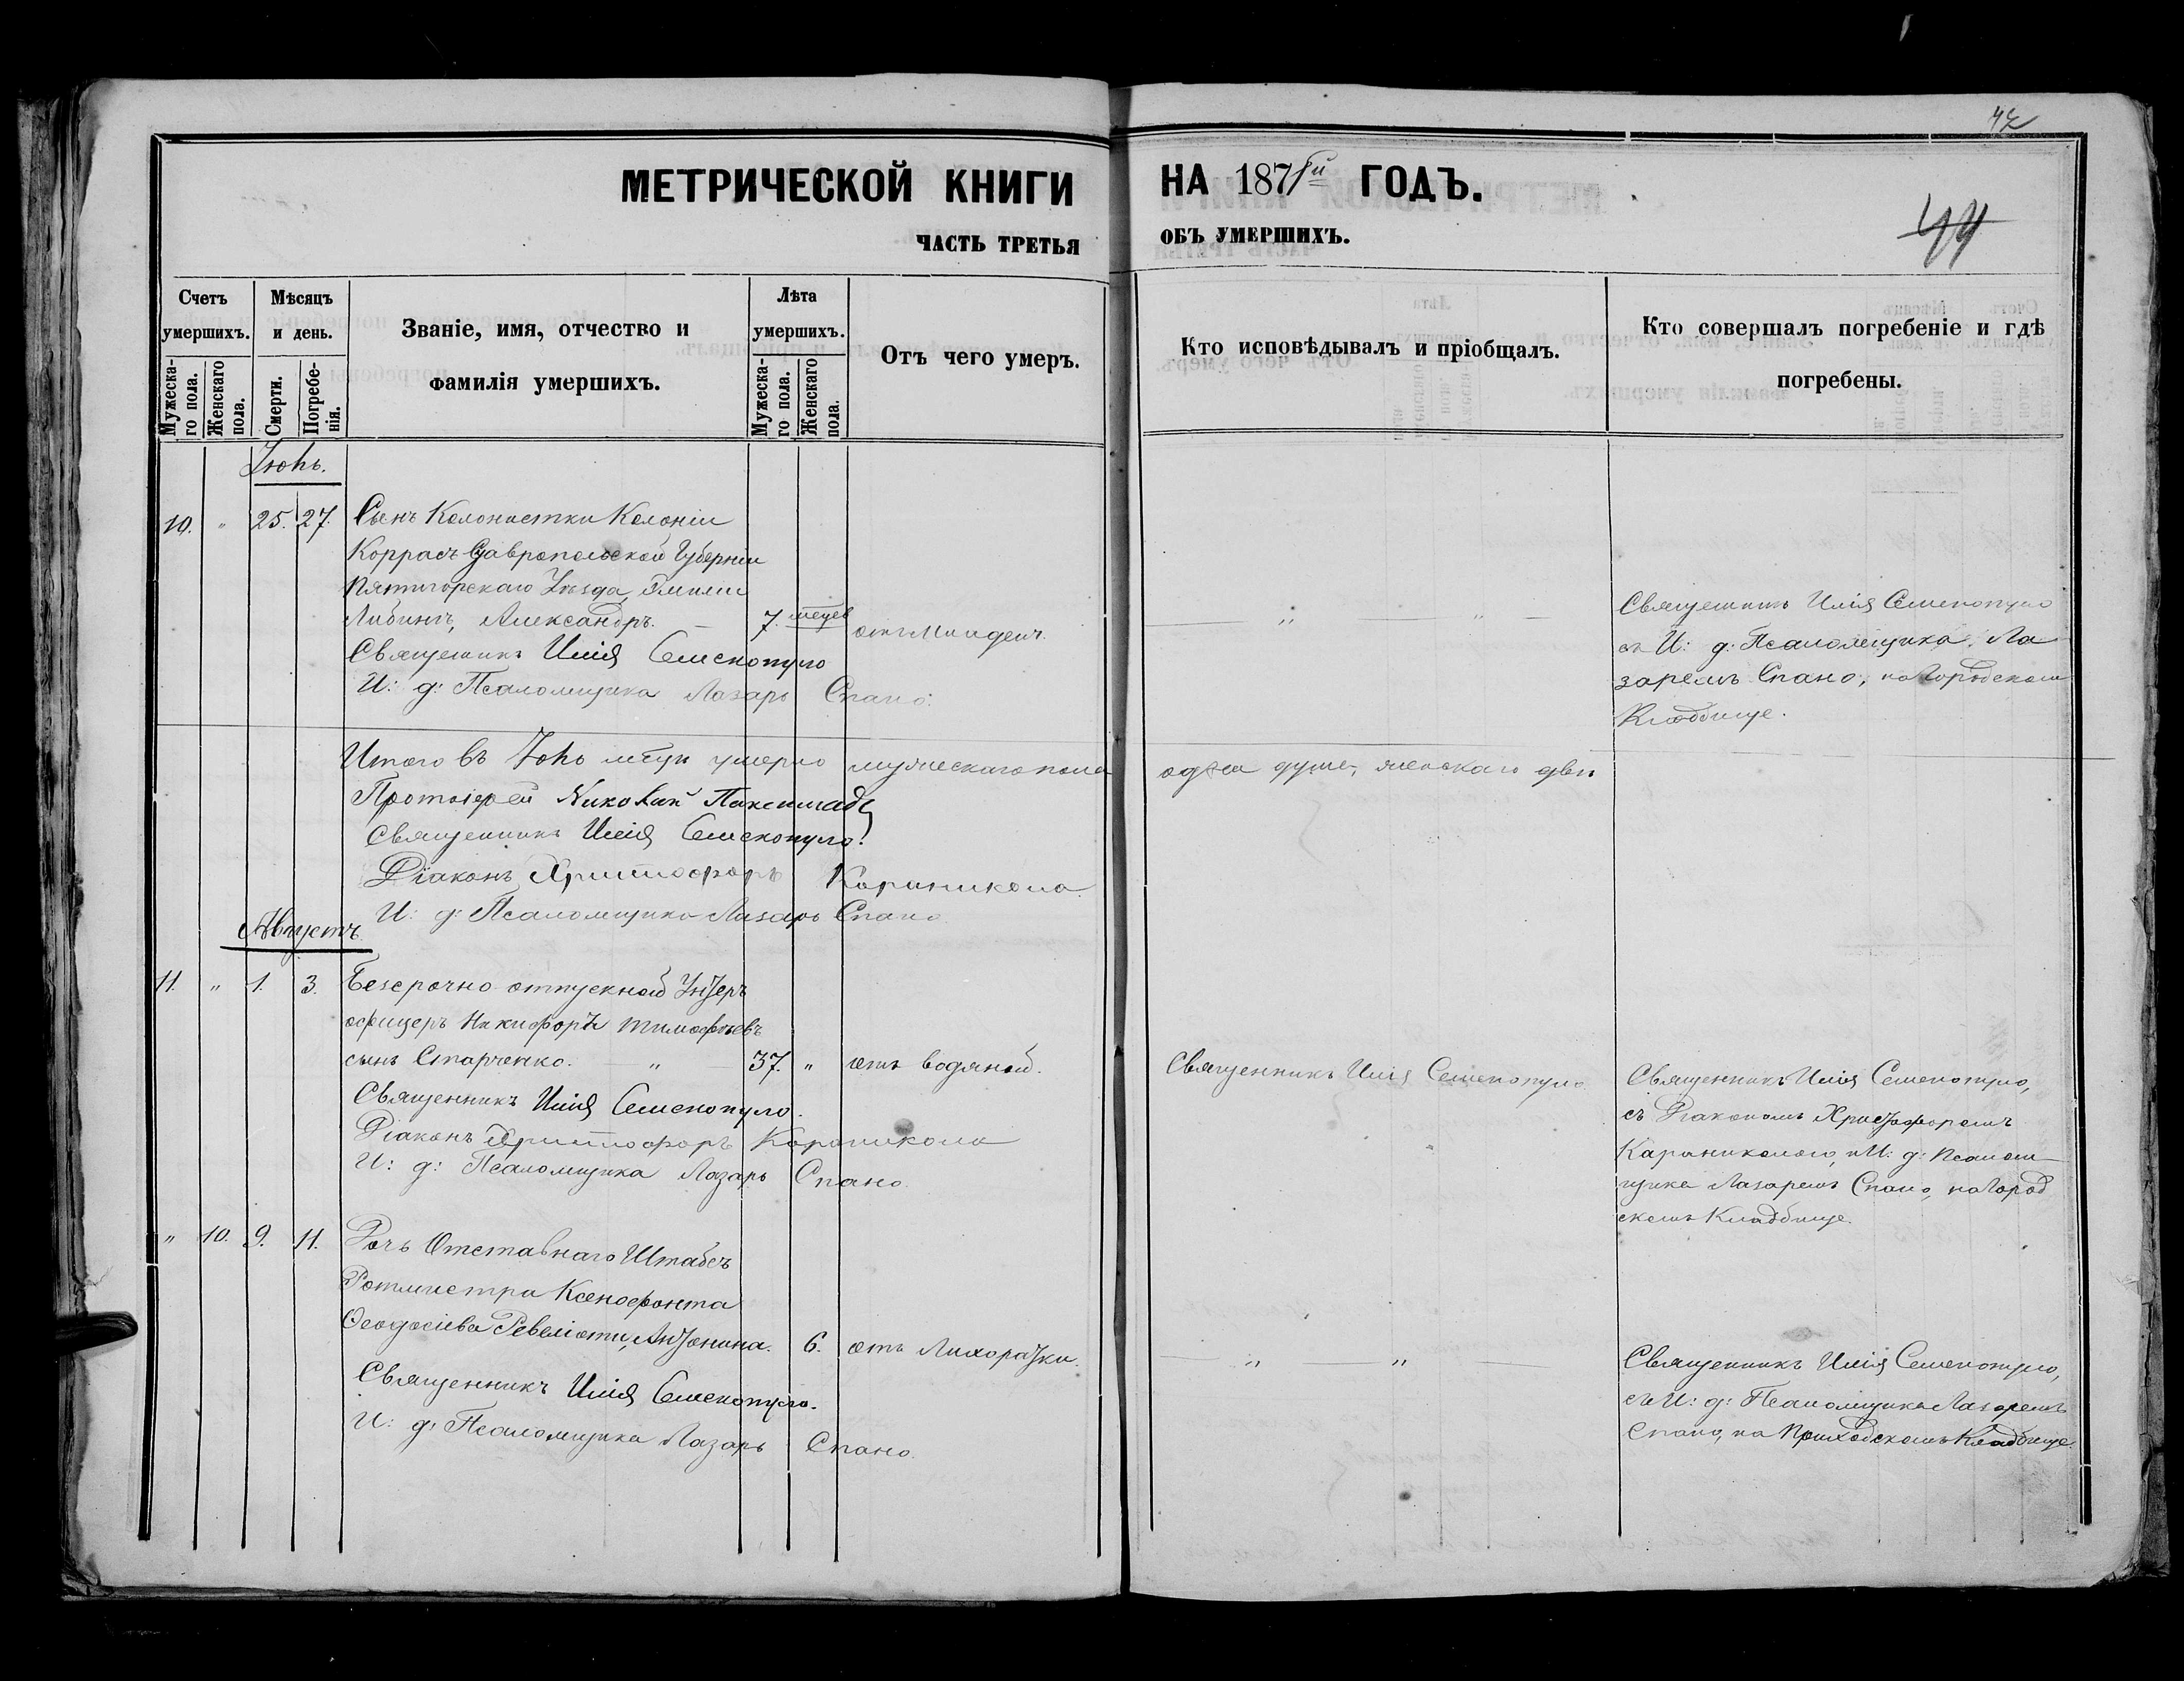 42
МЕТРИЧЕСКОЙ КНИГИ НА 1871й ГОДЪ.
44
ЧАСТЬ ТРЕТЬЯ ОБЪ УМЕРШИХЪ.
Счетъ умершихъ.
Мужеска-го пола.
Женскаго пола.
Мѣсяцъ и день.
Смерти.
Погребе-нія.
Званіе, имя, отчество и фамилія умершихъ.
Лѣта умершихъ.
Мужеска-го пола.
Женскаго пола.
Отъ чего умеръ.
Кто исповѣдывалъ и пріобщалъ.
Кто совершалъ погребеніе и гдѣ погребены.
10. " 25. 27. Сынъ Колонистки Колоніи
Коррасъ Ставропольской Губерніи
Пятигорскаго Уѣзда, Эмиліи
Александръ. 7. мѣцев
Священникъ Илія Семенопуло
И: д: Псаломщика Лазарь Спано.
" "
Священникъ Илія Семенопуло
съ И: д: Псаломщика Ла
заремъ Спано, на Городскомъ
Кладбище.
Итого въ мѣцѣ умерло мужескаго пола одна душа, женскаго двѣ
Протоіерей Николай
Священникъ Илія Семенопуло.
Діаконъ Христофоръ Караникола
И: д: Псаломщика Лазарь Спано
Августъ
11. " 1. 3. Безсрочно отпускной Унтеръ
офицеръ Никифоръ Тимофѣевъ
сынъ Старченко. " 37. " отъ водяной.
Священникъ Илія Семенопуло.
Діаконъ Христофоръ Караникола
И: д: Псаломщика Лазарь Спано.
Священникъ Илія Семенопуло
Священникъ Илія Семенопуло,
съ Діакономъ Христофоромъ
Караниколою, и И: д: Псалом
щика Лазаремъ Спано, на Город
скомъ Кладбище.
" 10. 9. 11. Дочь Отставнаго Штабсъ
Ротмистра Ксенофонта
Ѳеодосіева Ревеліоти, Антонина. 6. отъ Лихорадки.
Священникъ Илія Семенопуло.
И: д: Псаломщика Лазарь Спано.
" "
Священникъ Илія Семенопуло,
съ И: д: Псаломщика Лазаремъ
Спано, на Приходскомъ Кладбище.